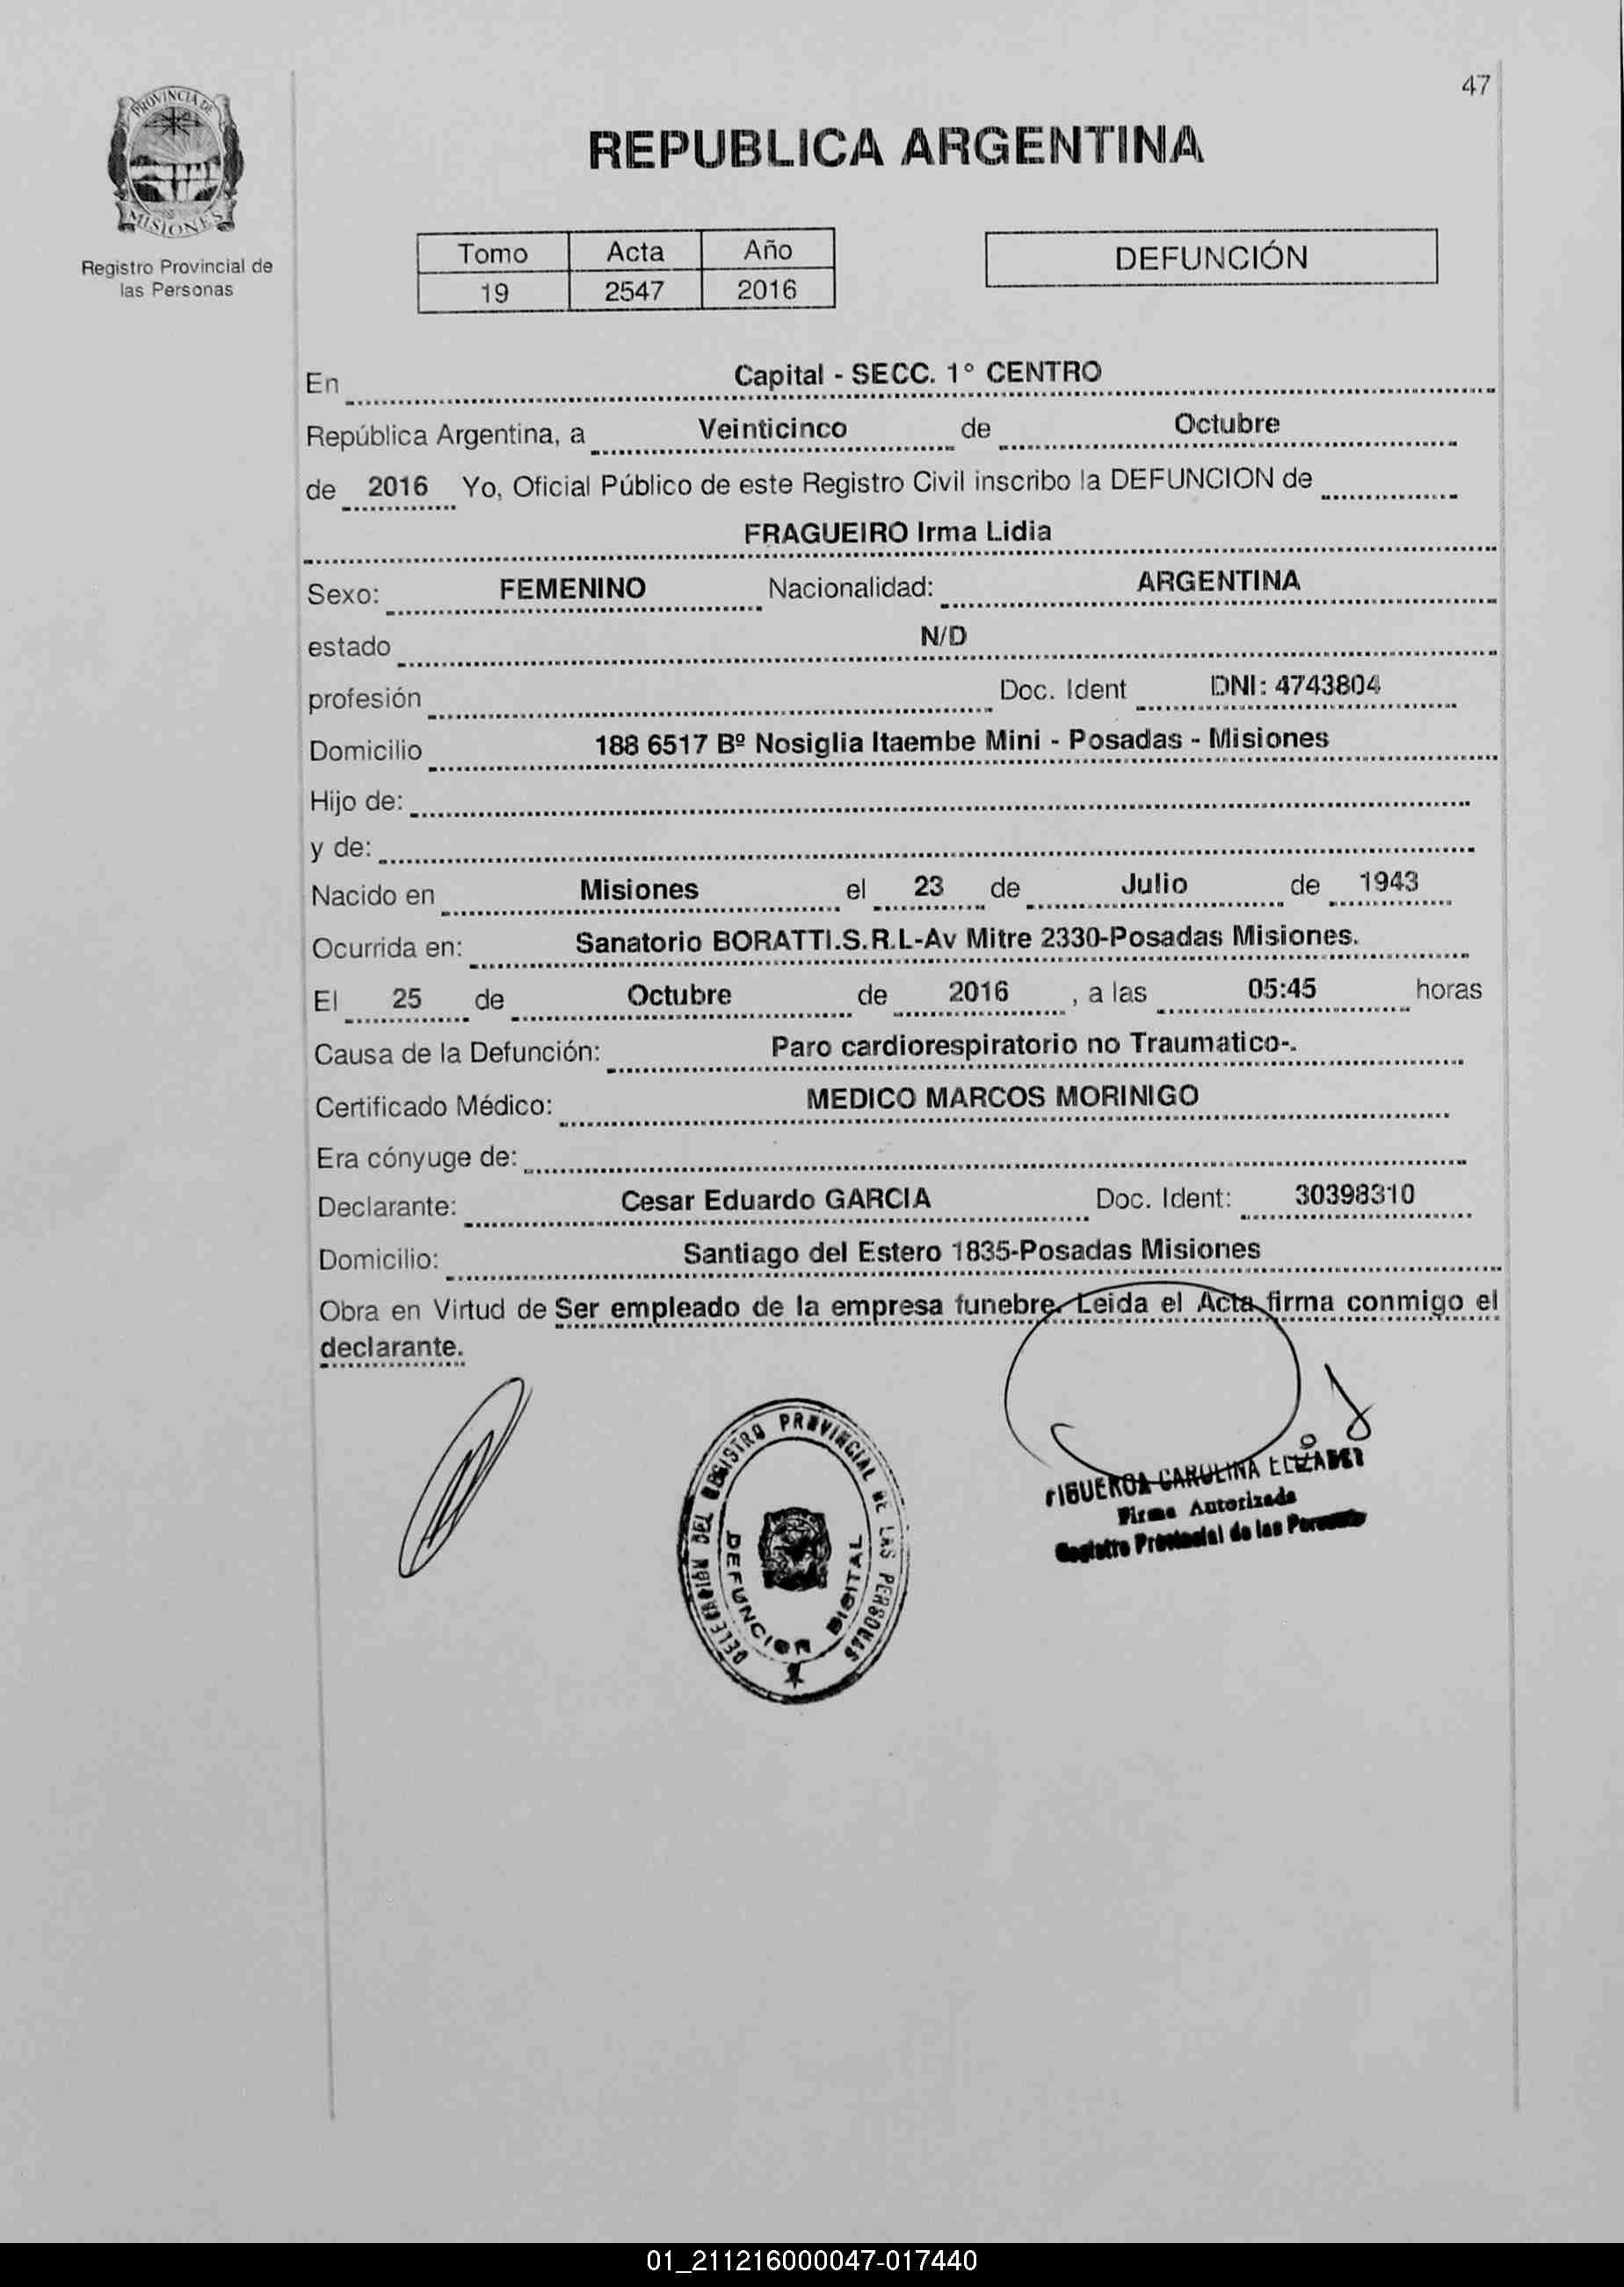 47
PROVINCIA DE
MISIONES
Registro Provincial de
las Personas
REPUBLICA ARGENTINA
Tomo Acta Año
19 2547 2016
DEFUNCIÓN
En Capital - SECC. 1° CENTRO
República Argentina, a Veinticinco de Octubre
de 2016 Yo, Oficial Público de este Registro Civil inscribo la DEFUNCION de
FRAGUEIRO Irma Lidia
Sexo: FEMENINO Nacionalidad: ARGENTINA
estado N/D
profesión Doc. Ident DNI: 4743804
Domicilio 188 6517 Bº Nosiglia Itaembe Mini - Posadas - Misiones
Hijo de:
y de:
Nacido en Misiones el 23 de Julio de 1943
Ocurrida en: Sanatorio BORATTI.S.R.L-Av Mitre 2330-Posadas Misiones.
El 25 de Octubre de 2016 , a las 05:45 horas
Causa de la Defunción: Paro cardiorespiratorio no Traumatico-.
Certificado Médico: MEDICO MARCOS MORINIGO
Era cónyuge de:
Declarante: Cesar Eduardo GARCIA Doc. Ident: 30398310
Domicilio: Santiago del Estero 1835-Posadas Misiones
Obra en Virtud de Ser empleado de la empresa funebre. Leida el Acta firma conmigo el
declarante.
DELEGACION DEL REGISTRO PROVINCIAL DE LAS PERSONAS
DEFUNCION DIGITAL
FIGUEROA CAROLINA ELIZABET
Firma Autorizada
Registro Provincial de las Personas
01_211216000047-017440